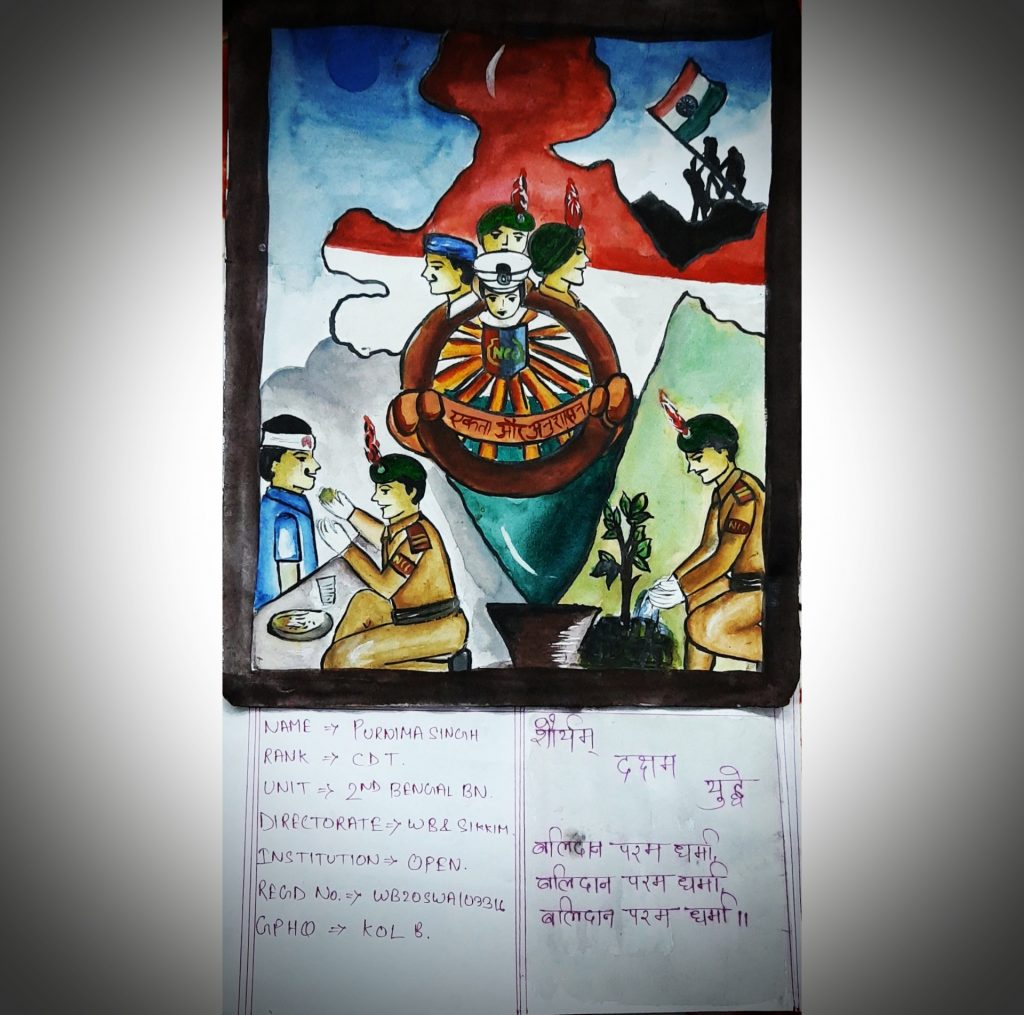 NCC
एकता और अनुशासन
NCC
NCC
NAME ⇒ PURNIMA SINGH
RANK ⇒ CDT.
UNIT ⇒ 2ND BENGAL BN.
DIRECTORATE ⇒ WB & SIKKIM.
INSTITUTION ⇒ OPEN.
REGD NO. ⇒
GPHQ ⇒ KOL B.
शौर्यम्
दक्षम
युद्धे
बलिदान परम धर्मा,
बलिदान परम धर्मा,
बलिदान परम धर्मा॥